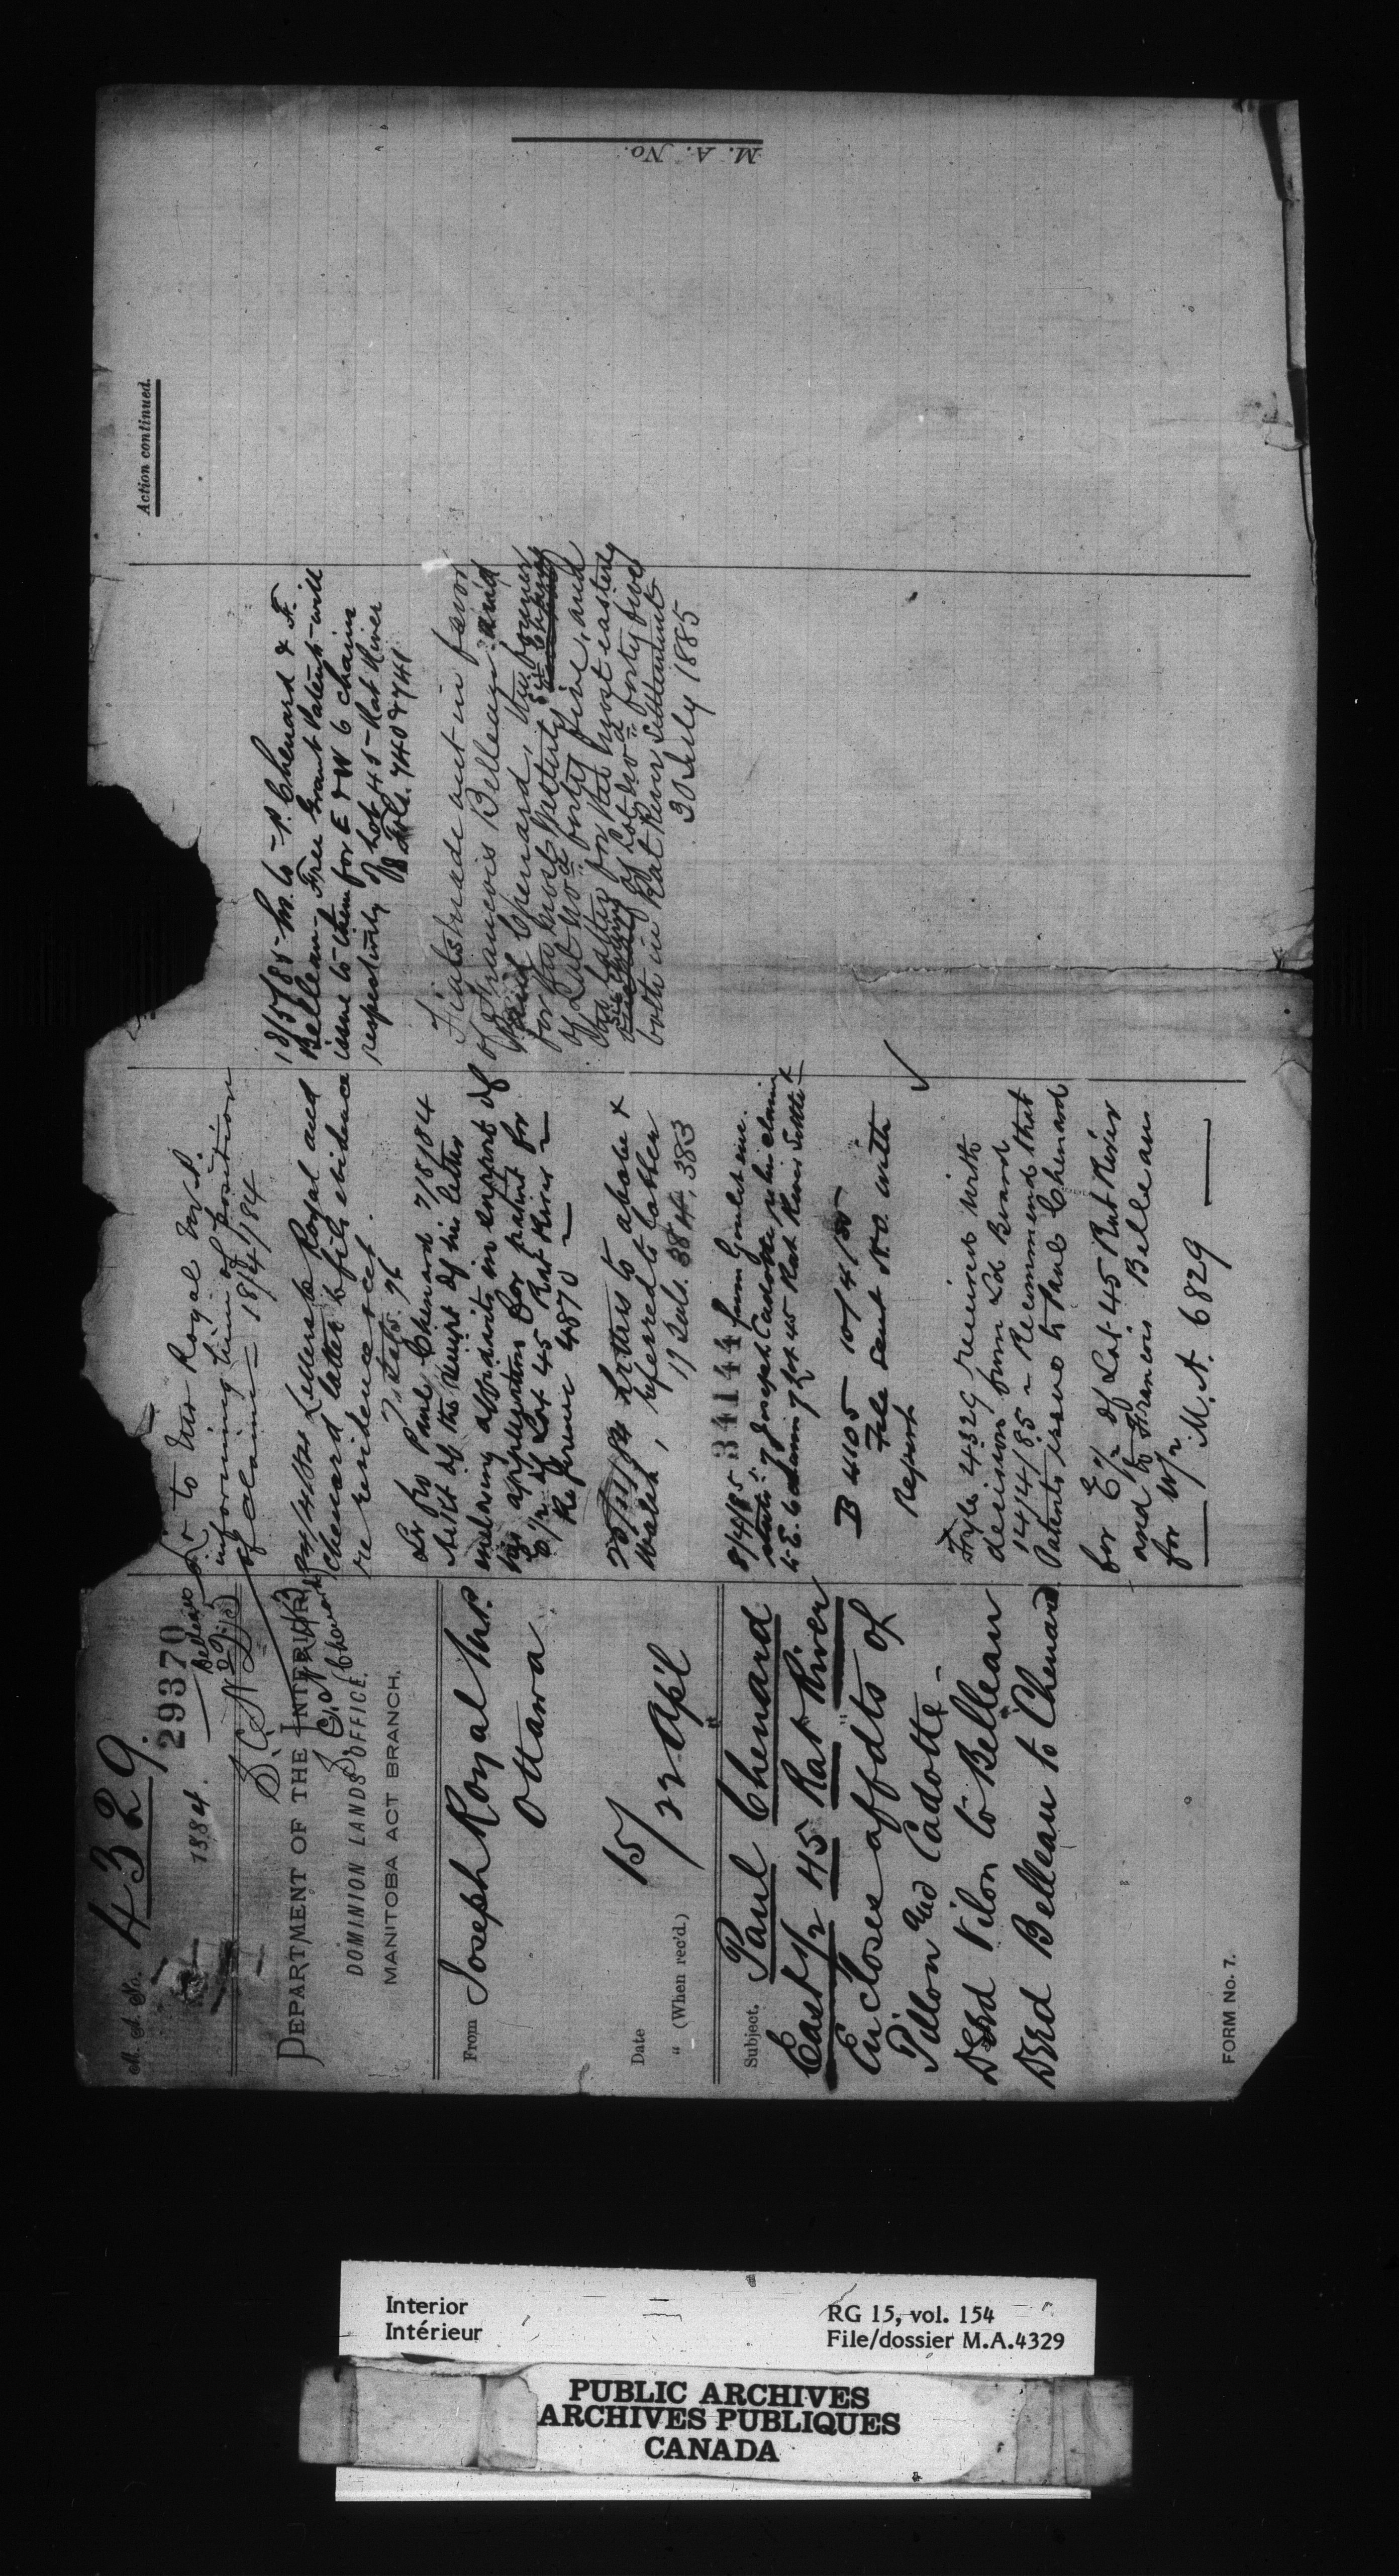 M. A. No. 4329.
29370
1884.
S. C. N
DEPARTMENT OF THE INTERIOR
DOMINION LANDS OFFICE.
MANITOBA ACT BRANCH.
From Joseph Royal M.P.
Ottawa
Date 15/
" (When rec'd.) 22 Apl
Subject. Paul Chenard
East 1/2 45 Rat River
Encloses affdts of
Pillon and Cadotte -
Deed Pilon to Belleau
Deed Belleau to Chenard
FORM No. 7.
to Mr Royal M.P.
informing him of position
of claim = 18/4/84
Letters to Royal and
Chenard latter to file evidence
re residence &ct.
Lr to Paul Chenard 7/8/84
of the receipt of his letter
inclosing affidavits in support of
his application for patent for
E 1/2 of Lot 45 Rat River
Reference 4870
25/11/84 Letters to above &
Walsh, referred to latter
17 Sub. 384, 383
8/4/85 34144 from Goulet enc.
of Joseph Cadotte, who claims
Lot 45 Rat River Settlt
B 4105 10/4/85
File sent N.O. with
Report
File 4329 received with
decision from Ld Board
14/4/85 - Recommend that
Patents issue to Paul Chenard
for E 1/2 of Lot 45 Rat River
and to Francois Belleau
for W 1/2
M.A. 6829
18/5/85 - P. Chenard & F.
Belleau - Free Grant Patent will
issue to them for E & W 6 chains
respectively of Lot 45 - Rat River
Fols. 740 & 741
Fiats made out in favor
of Francois Belleau and
Paul Chenard, the former
for the most westerly six chains
of Lot No. forty five, and
the latter for the most easterly
six chains of Lot No. forty five
both in Rat River Settlement
30 July 1885
Action continued.
M. A. No.
Interior
Intérieur
RG 15, vol. 154
File/dossier M.A.4329
PUBLIC ARCHIVES
ARCHIVES PUBLIQUES
CANADA